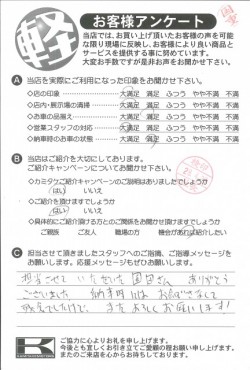 軽
お客様アンケート
当店では、お買い上げ頂いたお客様の声を可能
な限り現場に反映し、お客様により良い商品と
サービスを提供する事に努めています。
大変お手数ですが是非お声をお聞かせ下さい。
A 当店を実際にご利用になった印象をお聞かせ下さい。
◇店の印象 大満足 満足 ふつう やや不満 不満
◇店内・展示場の清掃 大満足 満足 ふつう やや不満 不満
◇お車の品揃え 大満足 満足 ふつう やや不満 不満
◇営業スタッフの対応 大満足 満足 ふつう やや不満 不満
◇納車時のお車の状態 大満足 満足 ふつう やや不満 不満
B 当店はご紹介を大切にしてあります。
ご紹介キャンペーンについてお聞かせ下さい。
◇カミタケご紹介キャンペーンのご説明はありましたでしょうか
はい いいえ
◇ご紹介キャンペーンをお聞き頂けますでしょうか
はい いいえ
◇具体的にご紹介頂ける方とのご関係をお聞かせ頂けますでしょうか
ご親族 ご友人 職場の方 機会があれば紹介したい
C 担当させて頂きましたスタッフへのご指摘、ご指導メッセージを
お願いします。応援メッセージもぜひお願いします。
担当させて いただいた さん ありがとう
ございました
K
ご協力に心よりお礼を申し上げます。
今後とも宜しくお引き立てご愛顧の程お願い申し上げます。
またのご来店を心からお待ちしております。